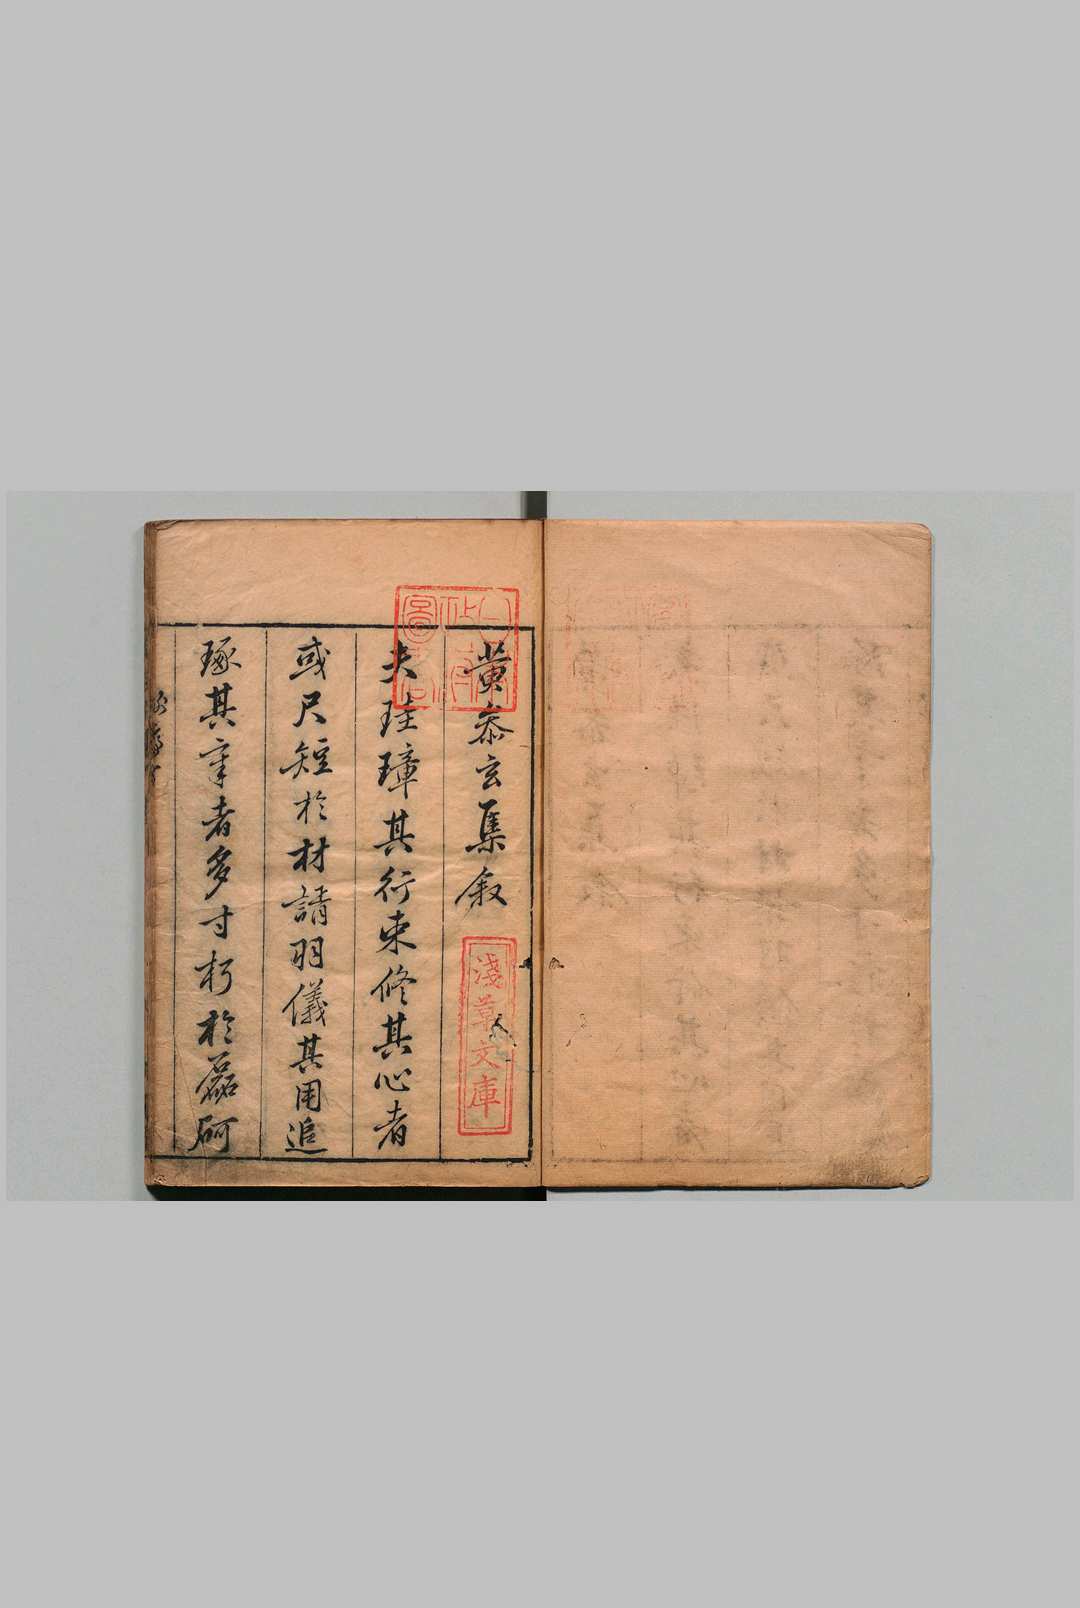 黄泰玄集叙
夫珪璋其行束修其心者
或尺短於材請羽儀其用追
琢其章者多寸朽於磊砢
淺草文庫